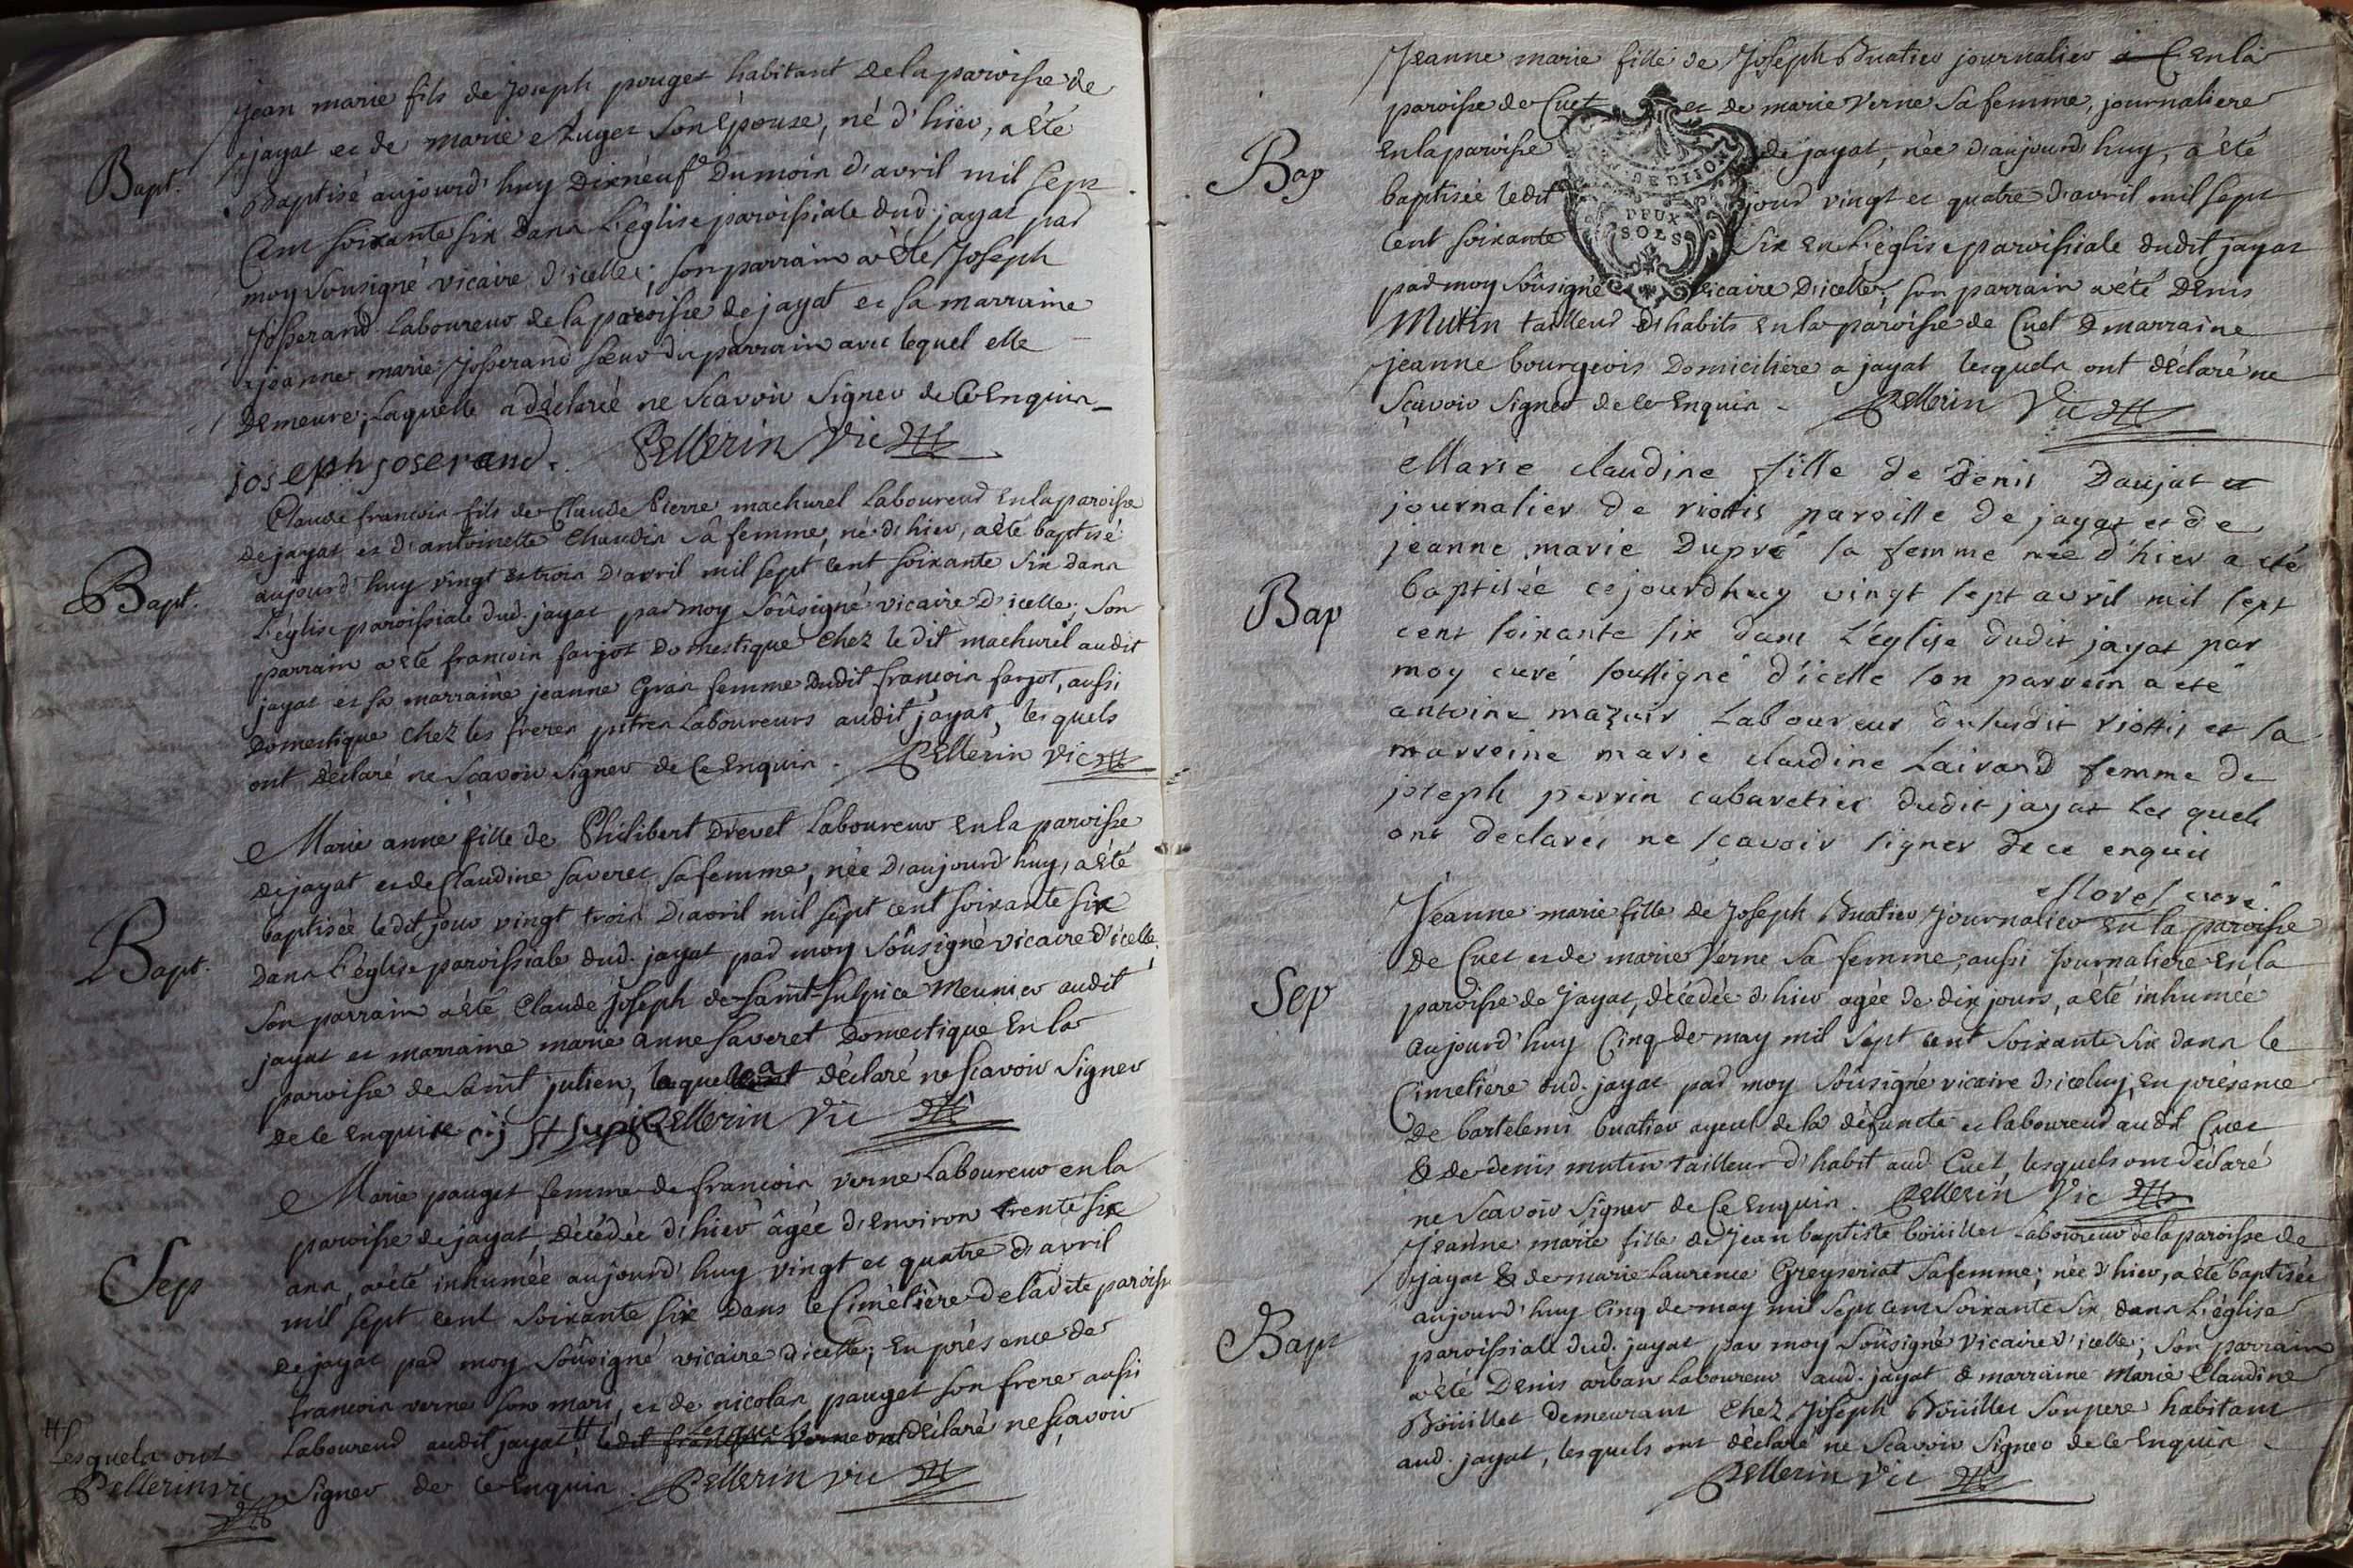 Bapt.
Jean marie fils de Joseph pouget habitant de la paroisse de
jayat et de marie Auger son Epouse, né d'hier, a Eté
Baptisé aujourd'huy Dixneuf Du mois d'avril mil sept
Cent soixante six dans L'église paroissiale dud. jayat par
moy Soûsigné vicaire d'icelle; son parrain a Eté Joseph
Josserand Laboureur de la paroisse de jayat et sa marraine
jeanne marie Josserand sœur du parrain avec lequel elle
Demeure; Laquelle a déclaré ne Scavoir Signer de Ce Enquis
joseph joserand. Pellerin Vic
Bapt.
Claude francois fils de Claude Pierre machurel Laboureur En la paroisse
de jayat et d'antoinette Chaudin sa femme, né d'hier, a Eté baptisé
aujourd'huy vingt et trois d'avril mil sept cent soixante Six dans
L'église paroissiale dud. jayat par moy Soûsigné vicaire d'icelle; Son
parrain a Eté francois farjot Domestique Chez le dit machurel audit
jayat et sa marraine jeanne Gras femme Dudit francois farjot, aussi
Domestique Chez les freres pitres Laboureurs audit jayat, lesquels
ont Déclaré ne Scavoir Signer de Ce Enquis. Pellerin Vic
Bapt.
Marie anne fille de Philibert Drevet Laboureur En la paroisse
de jayat et de Claudine Saveret sa femme, née D'aujourd'huy, a Eté
baptisée ledit jour vingt trois D'avril mil sept cent soixante six
Dans L'église paroissiale dud. jayat par moy Soûsigné vicaire d'icelle
Son parrain a Eté Claude Joseph de Saint-Sulpice Meunier audit
jayat et marraine marie anne Saveret Domestique En la
paroisse de Saint julien, laquelle a déclaré ne Scavoir Signer
de Ce Enquise cij St Supi Pellerin Vic
Sep
Marie pauget femme de francois Verne Laboureur en la
paroisse de jayat, Décédée d'hier âgée d'Environ trente six
ans, a Eté inhumée aujourd'huy vingt et quatre d'avril
mil sept cent soixante six Dans le Cimétière de ladite paroisse
de jayat par moy Soûsigné vicaire d'icelle; En présence de
francois verne son mari, et de nicolas pauget son frere aussi
Laboureur audit jayat # ledit francois Verne ont déclaré ne Scavoir
Signer de Ce Enquis. Pellerin Vic
#
Lesquels ont
Pellerin vic
Bap
Jeanne marie fille de Joseph Buatier journalier a C En la
paroisse de Cuet et de marie Verne Sa femme, journaliere
En la paroisse de jayat, née d'aujourd'huy, a été
baptisée ledit jour vingt et quatre d'avril mil sept
Cent soixante Six En L'église paroissiale dudit jayat
par moy Soûsigné vicaire d'icelle, son parrain a été Denis
Mutin tailleur d'habits En la paroisse de Cuet & marraine
jeanne bourgeois Domiciliée a jayat lesquels ont déclaré ne
Scavoir Signer de Ce Enquis. Pellerin Vic
DE DIJON
DEUX
SOLS
Bap
Marie claudine fille de Denis Daujat et
journalier de riottis paroisse de jayat et de
jeanne marie Dupré sa femme née d'hier a eté
baptisée ce jourdhuy vingt sept avril mil sept
cent soixante six dans L'église dudit jayat par
moy curé soussigné d'icelle son parrein a eté
antoine mazuir Laboureur dususdit riottis et sa
marreine marie claudine Lairand femme de
joseph perrin cabaretier dudit jayat Les quels
ont declarés ne sçavoir signer de ce enquis
Morel curé.
Sep
Jeanne marie fille de Joseph Buatier Journalier En la paroisse
De Cuet et de marie Verne Sa femme, aussi Journaliere En la
paroisse de Jayat, décédée d'hier agée de dix jours, a Eté inhumée
aujourd'huy Cinq de may mil Sept cent Soixante Six dans le
Cimetiére dud. jayat par moy Soûsigné vicaire d'iceluy, En présence
De bartelemi buatier ayeul de la défuncte et laboureur audit Cuet
& de denis mutin tailleur d'habit aud. Cuet, lesquels ont déclaré
ne Scavoir Signer de Ce Enquis. Pellerin Vic
Bapt
Jeanne marie fille de Jean baptiste boüillet Laboureur de la paroisse de
jayat & de marie Laurence Greyseriat Sa femme; née d'hier, a été baptisée
aujourd'huy Cinq de may mil Sept cent Soixante Six dans L'église
paroissiall dud. jayat par moy Soûsigné Vicaire d'icelle; Son parrain
a été Denis arban Laboureur aud. jayat & marraine Marie Claudine
Boüillet demeurant Chez Joseph Boüillet Son pere habitant
aud. jayat, lesquels ont déclaré ne Scavoir Signer de Ce Enquis
Pellerin Vic